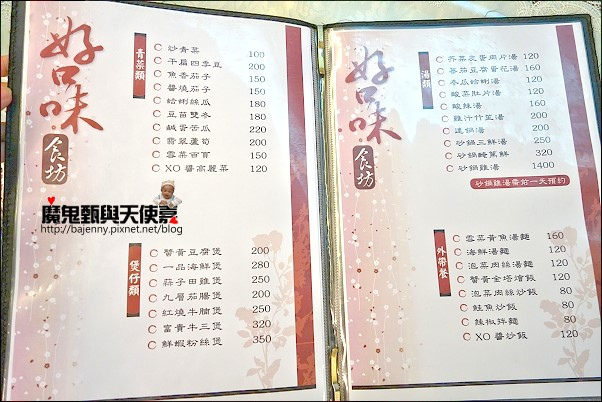 好口味
食坊
青菜類
炒青菜 100
干扁四季豆 200
魚香茄子 150
醬燒茄子 150
蛤蜊絲瓜 180
豆苗雙冬 180
鹹蛋苦瓜 220
翡翠蘆筍 200
雪菜百頁 150
XO 醬高麗菜 120
魔鬼甄與天使嘉
http://bajenny.pixnet.net/blog
煲仔類
蟹黃豆腐煲 200
一品海鮮煲 280
蒜子田雞煲 250
九層茄腸煲 200
紅燒牛腩煲 250
富貴牛三煲 320
鮮蝦粉絲煲 350
好口味
食坊
湯類
芥菜皮蛋肉片湯 120
蕃茄豆腐蛋花湯 160
冬瓜蛤蜊湯 120
酸菜肚片湯 120
酸辣湯 160
雞汁竹笙湯 200
連鍋湯 200
砂鍋三鮮湯 250
砂鍋醃篤鮮 320
砂鍋雞湯 1400
砂鍋雞湯需前一天預約
外帶餐
雪菜黃魚湯麵 160
海鮮湯麵 120
泡菜肉絲湯麵 120
蟹黃金塔燴飯 120
泡菜肉絲炒飯 80
鮭魚炒飯 80
辣椒拌麵 80
XO 醬炒飯 120